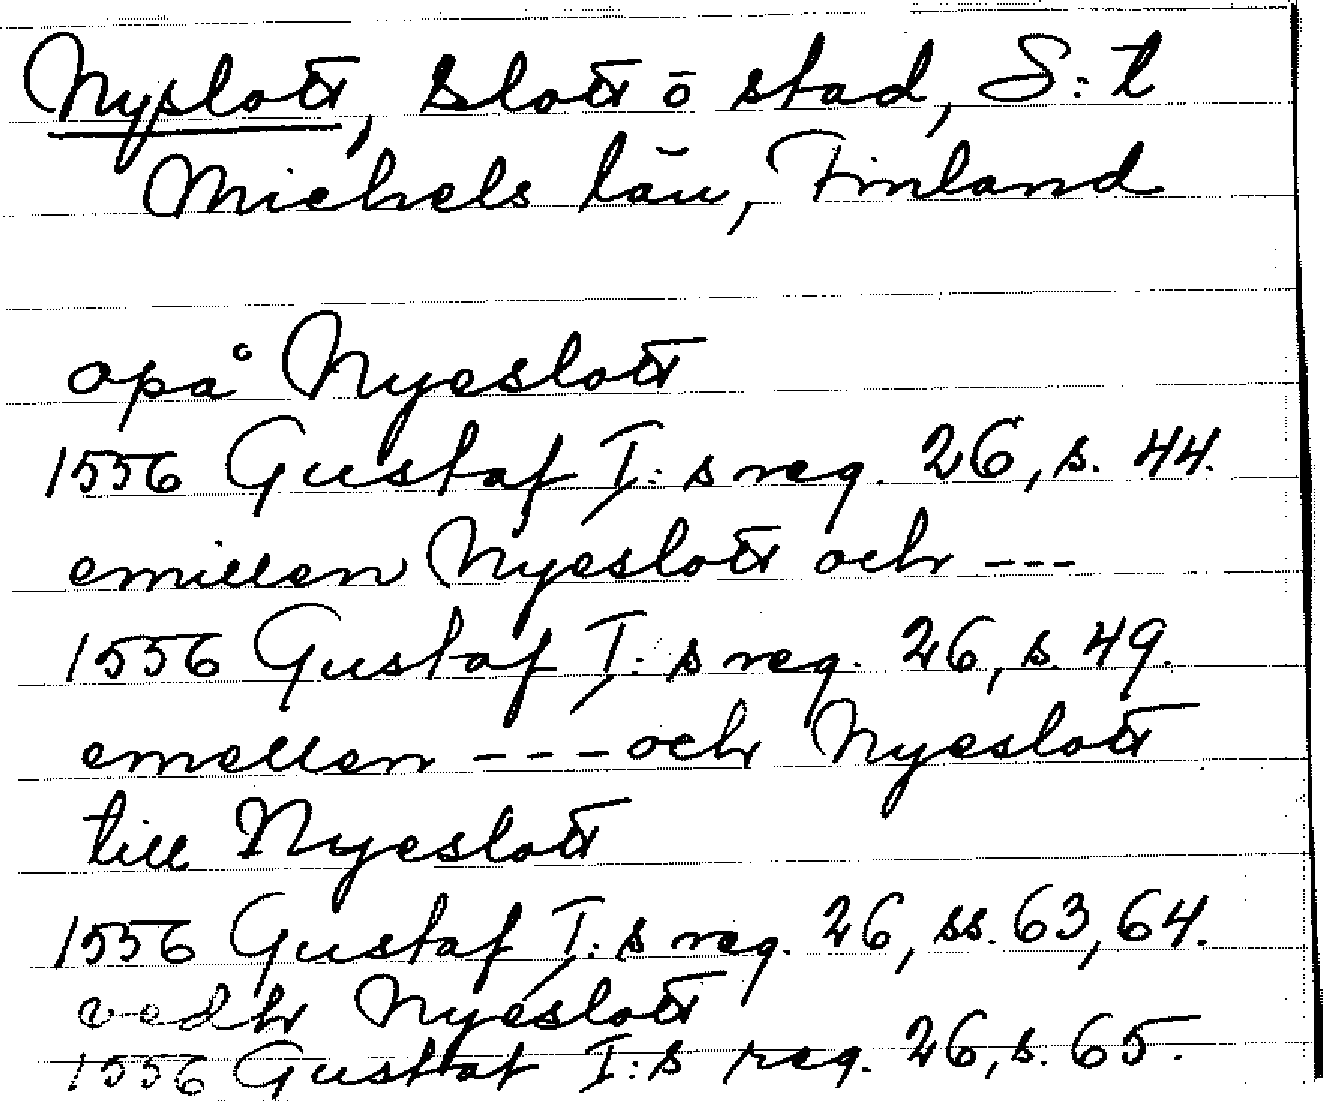 Nyslott, Slott o stad, S:t
Michels län, Finland
opå Nyeslott
1556 Gustaf I:s reg. 26, s. 44.
emillen Nyeslott och ---
1556 Gustaf I:s reg. 26, s. 49.
emellen --- och Nyeslott
till Nyeslott
1556 Gustaf I:s reg. 26, ss. 63, 64.
vedh Nyeslott
1556 Gustaf I:s reg. 26, s. 65.